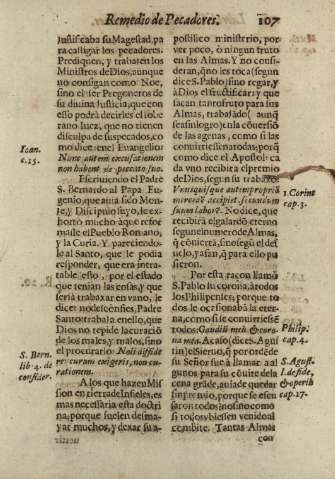 Remedio de Pecadores. 107
justificaba su Magestad, pa
ra castigar los pecadores.
Prediquen, y trabajen los
Ministros de Dios, aunque
no consigan como Noe,
sino el ser Pregoneros de
su divina Justicia, que con
esto podrà decirles el sobe
rano Iuez, que no tienen
disculpa de sus pecados, co
mo dice en el Evangelio:
Nunc autem excusationem
non habent de peccato suo.
Ioan.
c. 15.
Escriviendo el Padre
S. Bernardo al Papa Eu
genio, que avia sido Mon
ge, y Discipulo suyo, le ex
hortò mucho à que refor
masse el Pueblo Romano,
y la Curia. Y pareciendo
le al Santo, que le podia
responder, que era intra
table esto, por el estado
que tenian las cosas, y que
seria trabaxar en vano, le
dice: no desconfies, Padre
Santo; trabaja en ello, que
Dios no te pide la curaciò
de los males, y malos, sino
el procurarlo: Noli diffidere
curam exigeris, non cu
rationem.
S. Bern.
lib. 4. de
consider.
A los que hazen Mis
sion en tierra de Infieles, es
mas necessaria esta doctri
na, porque suelen desma
yar muchos, y dexar su a-
postolico ministerio, por
ver poco, ò ningun fruto
en las Almas. Y no consi
deran, q̃ no les toca (segun
dice S. Pablo) sino regar, y
à Dios el fructificar: y que
sacan tanto fruto para sus
Almas, trabajãdo (aunq̃
sea sin logro) en la cõversiõ
de las agenas, como si las
convirtiessen todas; porq̃
como dice el Apostol: ca
da vno recibirà el premio
de Dios, segun su trabajo:
Vnusquisque autem propriã
mercedẽ accipiet secundùm
suum laborẽ. No dice, que
recibirà el galardõ cada vno
segun el numero de Almas,
q̃ cõvierta, sino segũ el des
velo, y afan, q̃ para ello pu
sieron.
1. Corint
cap. 3.
Por esta raçon llamò
S. Pablo su corona, à todos
los Philipenses; porque to
dos le ocasionabã la eter
na, como si se convirtiessẽ
todos: Gaudiũ meũ & coro
na mea. Acaso (dice S. Agus
tin) el Siervo, q̃ por ordẽ de
su Señor fue à llamar à al
gunos para el cõbite de la
cena grãde, avia de quedar
sin premio, porque se escu
saron todos: no sino como
si todos vbiessen venido al
combite. Tantas Almas
con
Philip.
cap. 4.
S. Agust.
l. de fide,
& operib
cap. 17.